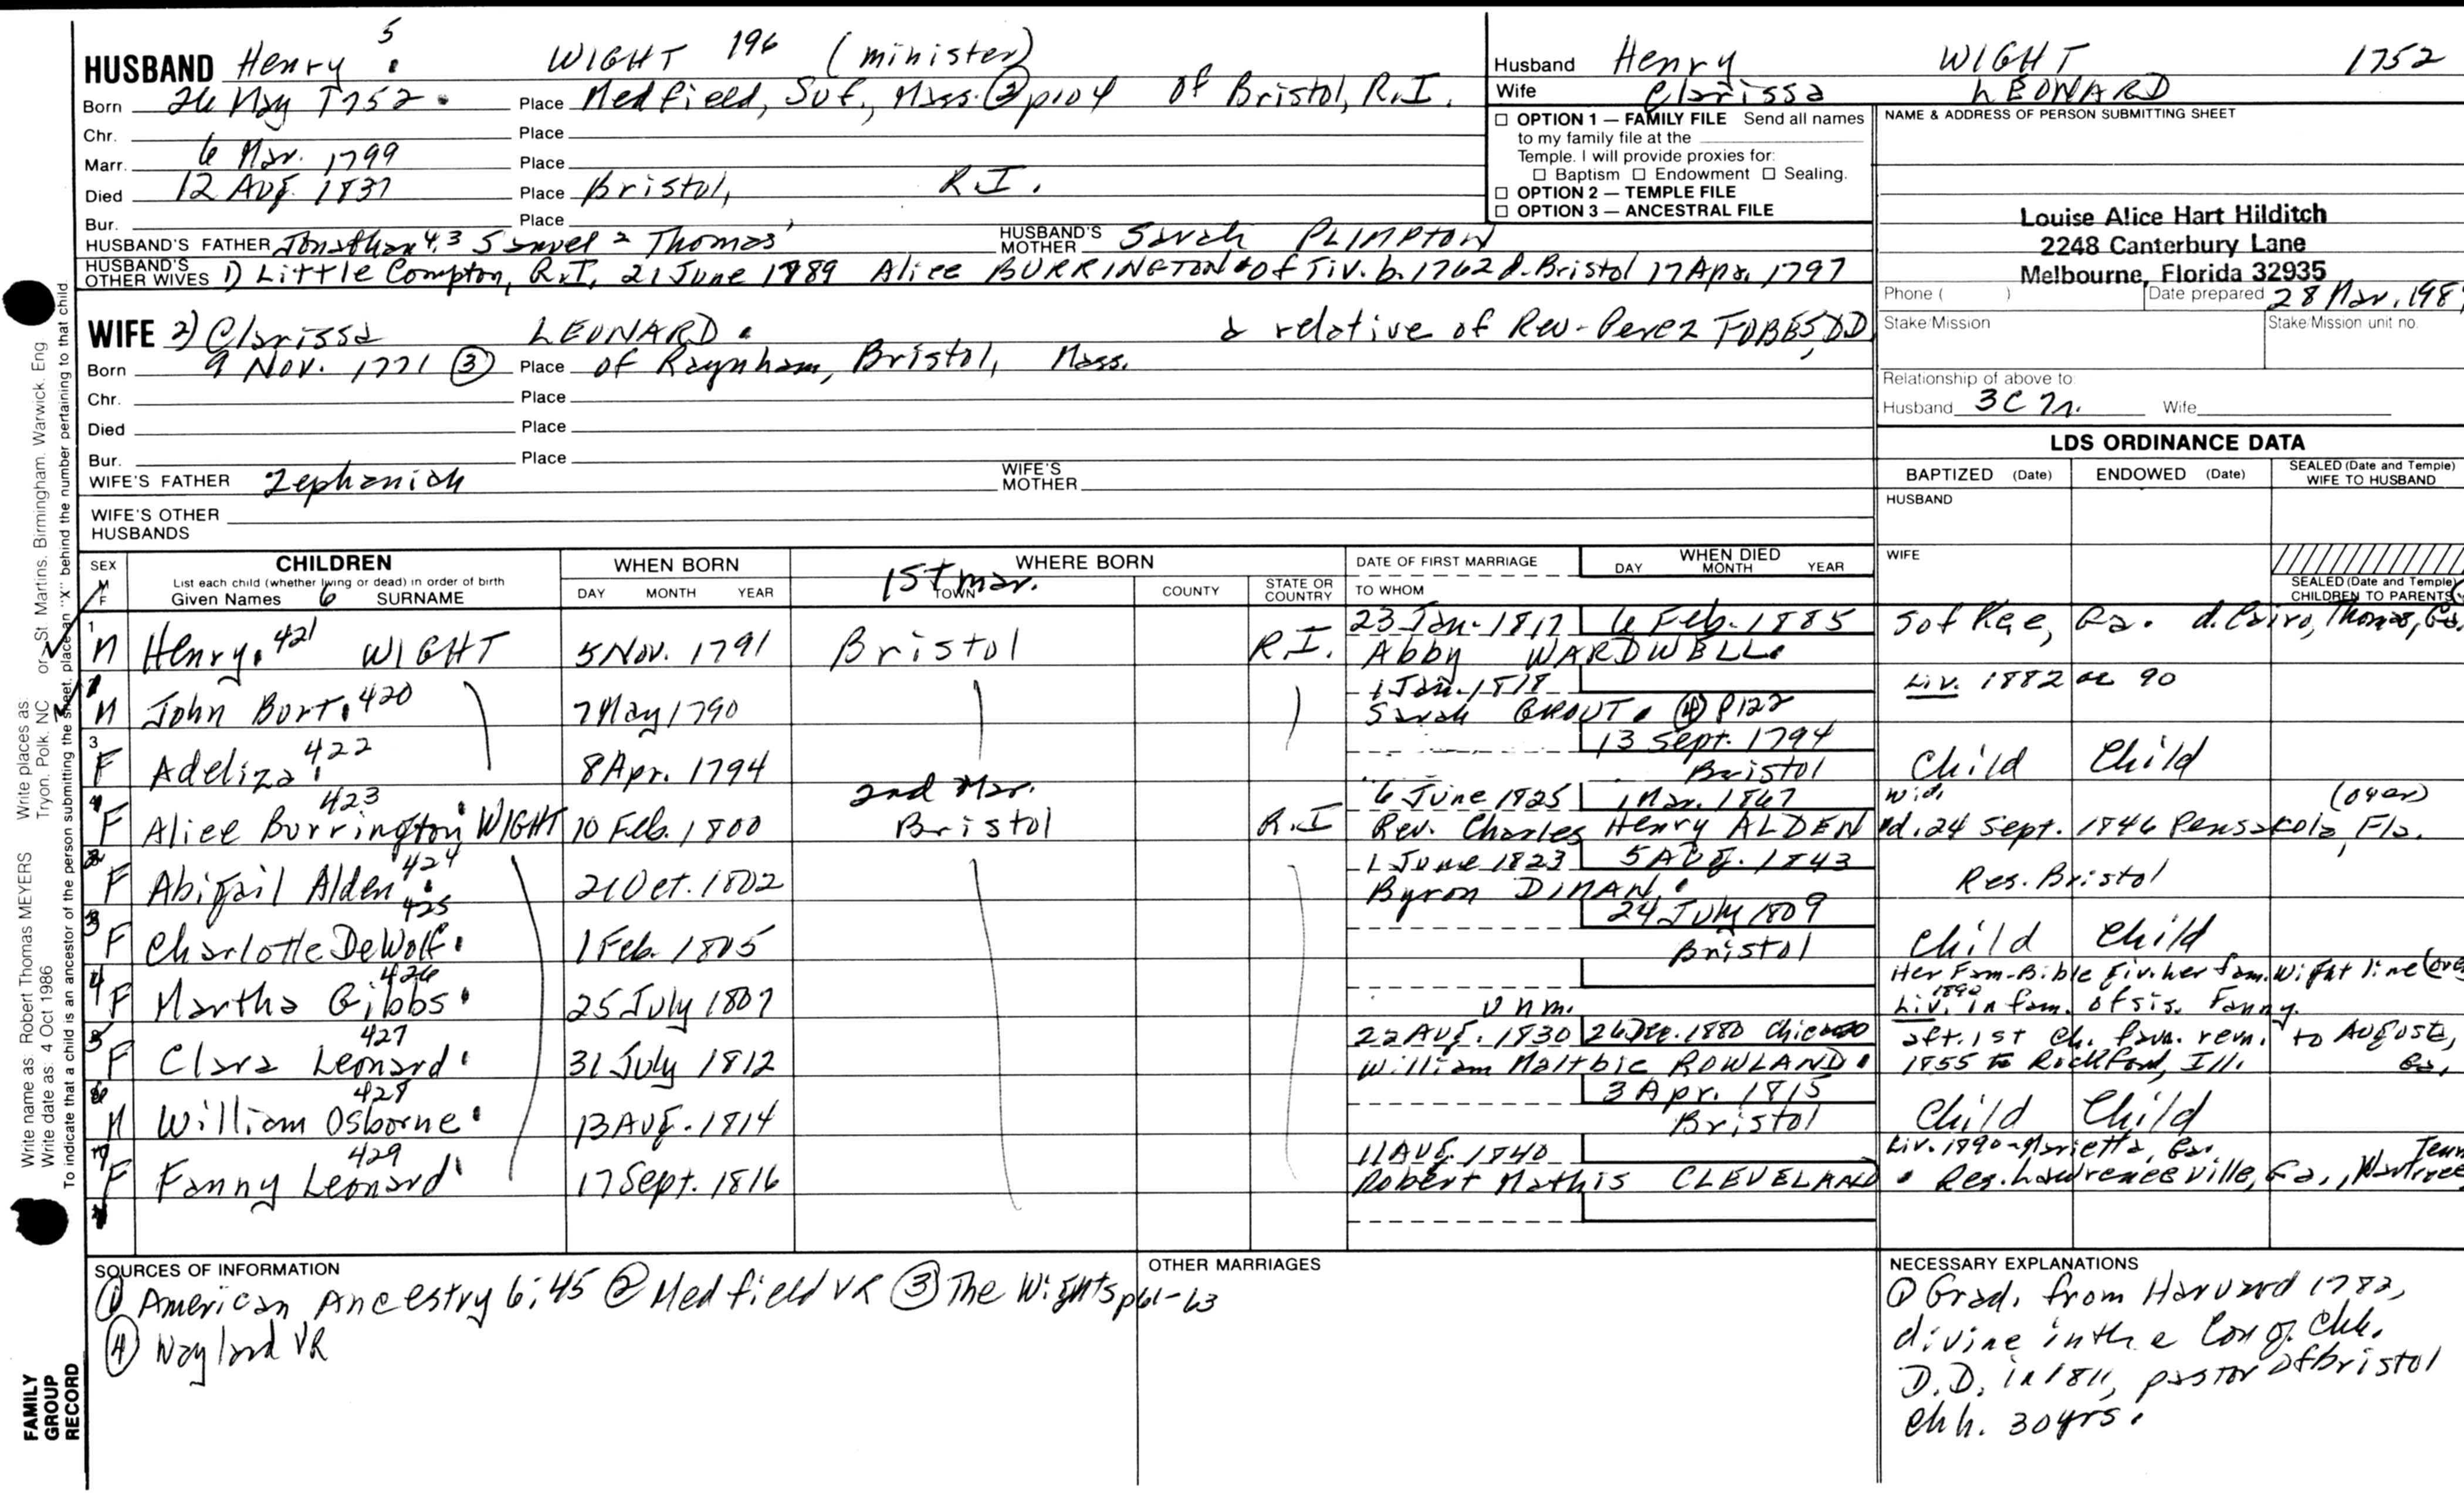 HUSBAND Henry 5 WIGHT 196 (minister)
Born 26 May 1752. Place Medfield, Suf., Mass. ② p104 of Bristol, R.I.
Chr. Place
Marr. 6 Mar. 1799 Place
Died 12 Aug. 1837 Place Bristol, R.I.
Bur. Place
HUSBAND'S FATHER Jonathan 4,3 Samuel 2 Thomas HUSBAND'S MOTHER Sarah PLIMPTON
HUSBAND'S OTHER WIVES 1) Little Compton, R.I. 21 June 1889 Alice BURRINGTON of Tiv. b. 1762 d. Bristol 17 Apr. 1797
WIFE 2) Clarissa LEONARD. a relative of Rev. Perez FOBES, DD
Born 9 Nov. 1771 ③ Place of Raynham, Bristol, Mass.
Chr. Place
Died Place
Bur. Place
WIFE'S FATHER Zephaniah WIFE'S MOTHER
WIFE'S OTHER HUSBANDS
Husband Henry WIGHT 1752
Wife Clarissa LEONARD
☐ OPTION 1 — FAMILY FILE Send all names
to my family file at the
Temple. I will provide proxies for:
☐ Baptism ☐ Endowment ☐ Sealing.
☐ OPTION 2 — TEMPLE FILE
☐ OPTION 3 — ANCESTRAL FILE
NAME & ADDRESS OF PERSON SUBMITTING SHEET
Louise Alice Hart Hilditch
2248 Canterbury Lane
Melbourne, Florida 32935
Phone ( ) Date prepared 28 Mar. 198
Stake/Mission Stake/Mission unit no.
Relationship of above to:
Husband 3C Wife
LDS ORDINANCE DATA
BAPTIZED (Date) ENDOWED (Date) SEALED (Date and Temple) WIFE TO HUSBAND
HUSBAND
WIFE
SEALED (Date and Temple) CHILDREN TO PARENTS
SEX M F CHILDREN WHEN BORN WHERE BORN DATE OF FIRST MARRIAGE WHEN DIED
List each child (whether living or dead) in order of birth
Given Names 6 SURNAME DAY MONTH YEAR 1st mar. TOWN COUNTY STATE OR COUNTRY TO WHOM DAY MONTH YEAR
1 M Henry. 421 WIGHT 5 Nov. 1791 Bristol R.I. 23 Jan. 1817 6 Feb. 1885
Abby WARDWELL.
M John Burt. 420 7 May 1790 1 Jan. 1818 Liv. 1882 or 90
Sarah GROUT. ④ p122
3 F Adeliza. 422 8 Apr. 1794 13 Sept. 1794 Bristol Child Child
2nd Mar.
F Alice Burrington 423 WIGHT 10 Feb. 1800 Bristol R.I 6 June 1825 1 Mar. 1867 wid. (over)
Rev. Charles Henry ALDEN d. 24 Sept. 1846 Pensacola, Fla.
F Abigail Alden. 424 21 Oct. 1802 1 June 1823 5 Aug. 1843 Res. Bristol
Byron DIMAN.
3 F Charlotte DeWolf. 425 1 Feb. 1805 24 July 1809 Bristol Child Child
4 F Martha Gibbs. 426 25 July 1807 unm. Her Fam. Bible giv. her fam. Wight line (over
Liv. 1890 in fam. of sis. Fanny.
5 F Clara Leonard. 427 31 July 1812 22 Aug. 1830 26 Dec. 1880 Chicago aft. 1st ch. fam. rem. to Augusta, Ga.
William Maltbie ROWLAND. 1855 to Rockford, Ill.
M William Osborne. 428 13 Aug. 1814 3 Apr. 1815 Bristol Child Child
F Fanny Leonard. 429 17 Sept. 1816 11 Aug. 1840 Liv. 1890 Marietta, Ga.
Robert Mathis CLEVELAND. Res. Lawrenceville, Ga., Tenn
SOURCES OF INFORMATION
① American Ancestry 6:45 ② Medfield VR ③ The Wights p61-63
④ Wayland VR
OTHER MARRIAGES
NECESSARY EXPLANATIONS
① Grad. from Harvard 1782,
divine in the Cong. Chh.
D.D. in 1811, pastor of bristol
chh. 30 yrs.
Write name as: Robert Thomas MEYERS Write places as: Tryon, Polk, NC or St Martins, Birmingham, Warwick, Eng
Write date as: 4 Oct 1986
To indicate that a child is an ancestor of the person submitting the sheet, place an "X" behind the number pertaining to that child.
FAMILY
GROUP
RECORD